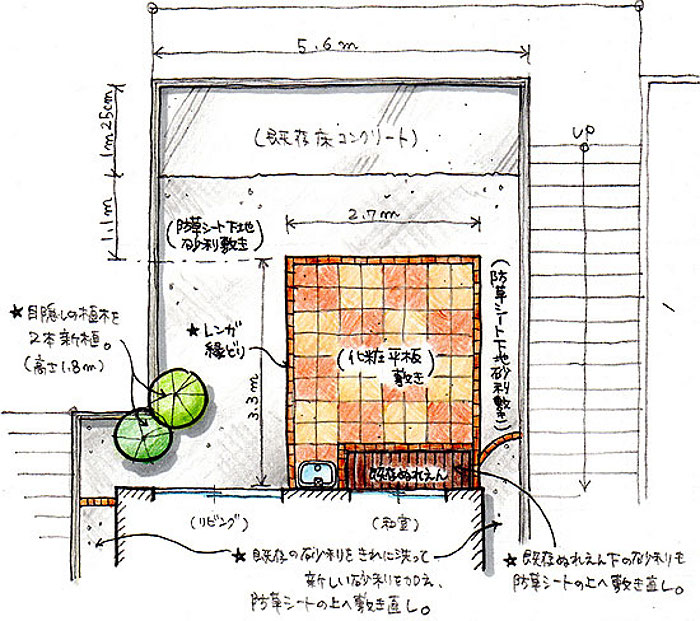 5.6m
1m25cm
(既存床コンクリート)
UP
1.1m
2.7m
(防草シート下地
砂利敷き)
★目隠しの植木を
2本新植。
(高さ1.8m)
★レンガ
縁どり
3.3m
(化粧平板
敷き)
(防草シート下地砂利敷き)
既存ぬれえん
(リビング)
(和室)
★既存の砂利をきれいに洗って
新しい砂利を加え、
防草シートの上へ敷き直し。
★既存ぬれえん下の砂利も
防草シートの上へ敷き直し。